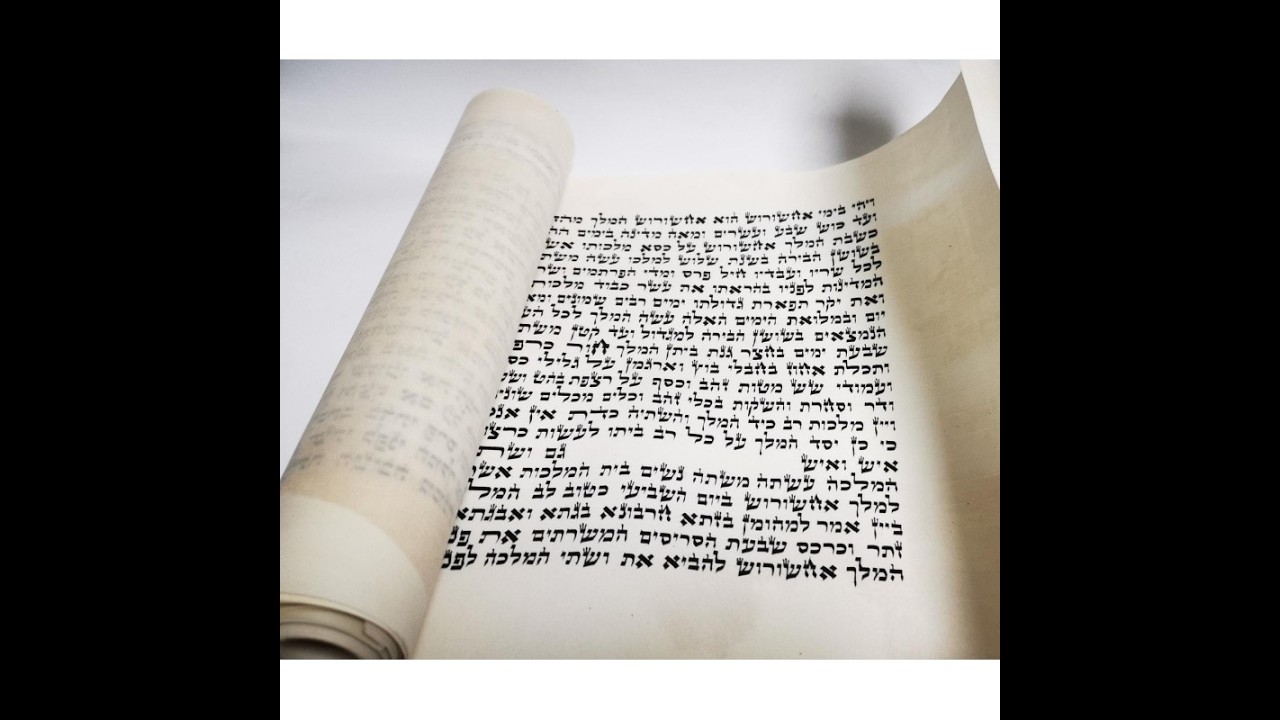 ויהי בימי אחשורוש הוא אחשורוש המלך מהד
ועד כוש שבע ועשרים ומאה מדינה בימים הה
כשבת המלך אחשורוש על כסא מלכותו אש
בשושן הבירה בשנת שלוש למלכו עשה משת
לכל שריו ועבדיו חיל פרס ומדי הפרתמים ושר
המדינות לפניו בהראתו את עשר כבוד מלכות
ואת יקר תפארת גדולתו ימים רבים שמונים ומא
יום ובמלואת הימים האלה עשה המלך לכל הע
הנמצאים בשושן הבירה למגדול ועד קטן משת
שבעת ימים בחצר גנת ביתן המלך חור כרפ
ותכלת אחוז בחבלי בוץ וארגמן על גלילי כס
ועמודי שש מטות זהב וכסף על רצפת בהט ושש
ודר וסחרת והשקות בכלי זהב וכלים מכלים שוני
ויין מלכות רב כיד המלך והשתיה כדת אין אנס
כי כן יסד המלך על כל רב ביתו לעשות כרצ
איש ואיש גם ושת
המלכה עשתה משתה נשים בית המלכות אשר
למלך אחשורוש ביום השביעי כטוב לב המל
ביין אמר למהומן בזתא חרבונא בגתא ואבגתא
זתר וכרכס שבעת הסריסים המשרתים את פנ
המלך אחשורוש להביא את ושתי המלכה לפנ